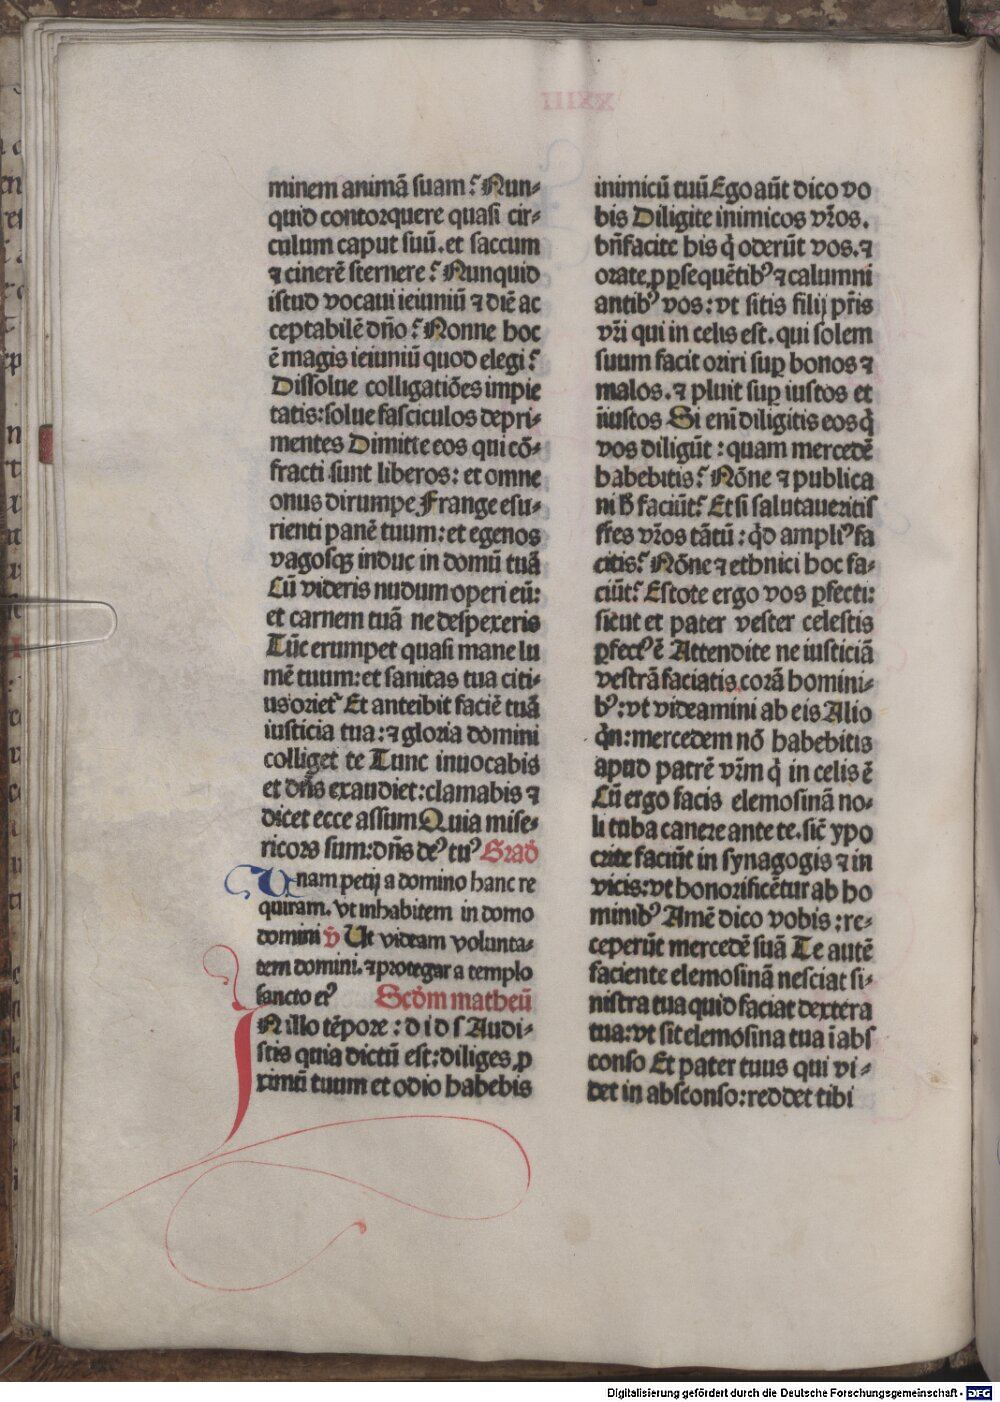 minem animā suam? Nun-
quid contorquere quasi cir-
culum caput suū. et saccum
⁊ cinerē sternere? Nunquid
istud vocaui ieiuniū ⁊ diē ac
ceptabilē dño? Nonne hoc
ē magis ieiuniū quod elegi?
Dissolue colligatiões impie
tatis: solue fasciculos depri-
mentes Dimitte eos qui cõ-
fracti sunt liberos: et omne
onus dirumpe Frange esu-
rienti panē tuum: et egenos
vagosqꝫ induc in domū tuā
Cū videris nudum operi eū:
et carnem tuā ne despexeris
Tūc erumpet quasi mane lu
mē tuum: et sanitas tua citi-
us orietˀ Et anteibit faciē tuā
iusticia tua: ⁊ gloria domini
colliget te Tunc inuocabis
et dñs exaudiet: clamabis ⁊
dicet ecce assum Quia mise-
ricors sum: dñs deꝰ tuꝰ Grad̄
Unam petij a domino hanc re
quiram. vt inhabitem in domo
domini v̄ Ut videam volunta-
tem domini. ⁊ protegar a templo
sancto eiꝰ Scd̄m matheū
IN illo tēpore: d i d s Audi-
stis quia dictū est: diliges ꝓ
ximū tuum et odio habebis
inimicū tuū Ego aūt dico vo
bis Diligite inimicos vr̄os.
bn̄facite his q̇ oderūt vos. ⁊
orate ꝓ ꝑsequētibꝰ ⁊ calumni
antibꝰ vos: vt sitis filij pr̄is
vr̄i qui in celis est. qui solem
suum facit oriri suꝑ bonos ⁊
malos. ⁊ pluit suꝑ iustos et
īiustos Si enī diligitis eos q̇
vos diligūt: quam mercedē
habebitis? Nōne ⁊ publica
ni h̄ faciūt? Et si salutaueritis
fr̄es vr̄os tātū: qd̄ ampliꝰ fa
citis? Nōne ⁊ ethnici hoc fa-
ciūt? Estote ergo vos ꝑfecti:
sicut et pater vester celestis
ꝑfectꝰ ē Attendite ne iusticiā
vestrā faciatis corā homini-
bꝰ: vt videamini ab eis Alio
qͥn: mercedem nō habebitis
apud patrē vr̄m q̇ in celis ē
Cū ergo facis elemosinā no-
li tuba canere ante te. sic̄ ypo
crite faciūt in synagogis ⁊ in
vicis: vt honorificētur ab ho
minibꝰ Amē dico vobis: re-
ceperūt mercedē suā Te autē
faciente elemosinā nesciat si-
nistra tua quid faciat dextera
tua: vt sit elemosina tua ī abs
conso Et pater tuus qui vi-
det in absconso: reddet tibi
Digitalisierung gefördert durch die Deutsche Forschungsgemeinschaft - DFG